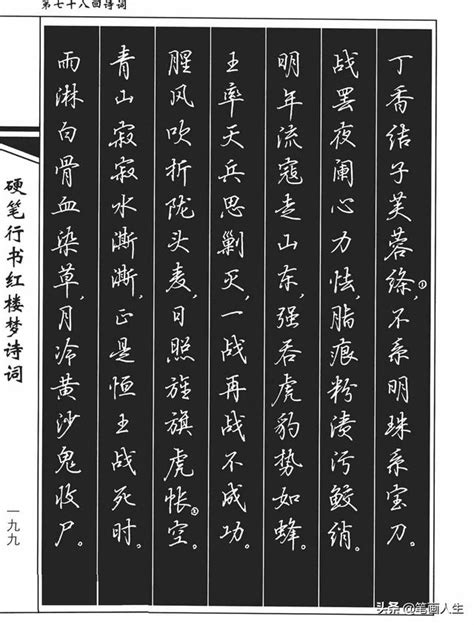 第七十八回诗词
丁香结子芙蓉绦,①不系明珠系宝刀。
战罢夜阑心力怯,脂痕粉渍污鲛绡。
明年流寇走山东,强吞虎豹势如蜂。
王率天兵思剿灭,一战再战不成功。
腥风吹折陇头麦,日照旌旗虎帐空。
青山寂寂水澌澌,正是恒王战死时。
雨淋白骨血染草,月冷黄沙鬼收尸。
硬笔行书红楼梦诗词
一九九
头条 @笔画人生